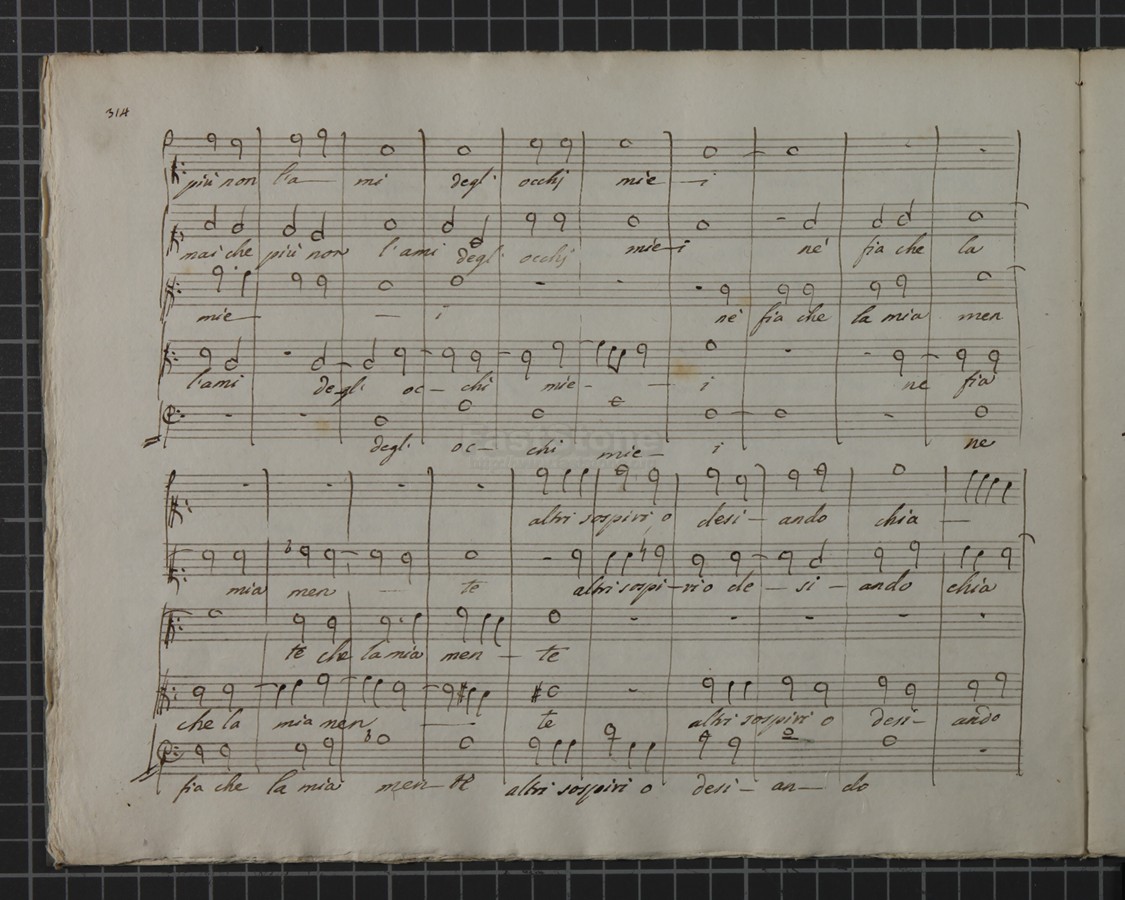 314
più non l'a— mi degl' occhj mie —i
mai che più non l'ami degl' occhj mie—i né fia che la
mie— — i né fia che la mia men
l'ami degl' oc— chi mie— — i ne fia
degl' oc— chi mie— i ne
altri sospiri o desi— ando chia —
mia men — te altri sospi—ri o de—si— ando chia
te che la mia men — te
che la mia men — te altri sospiri o desi— ando
fia che la mia men—te altri sospiri o desi— an— do